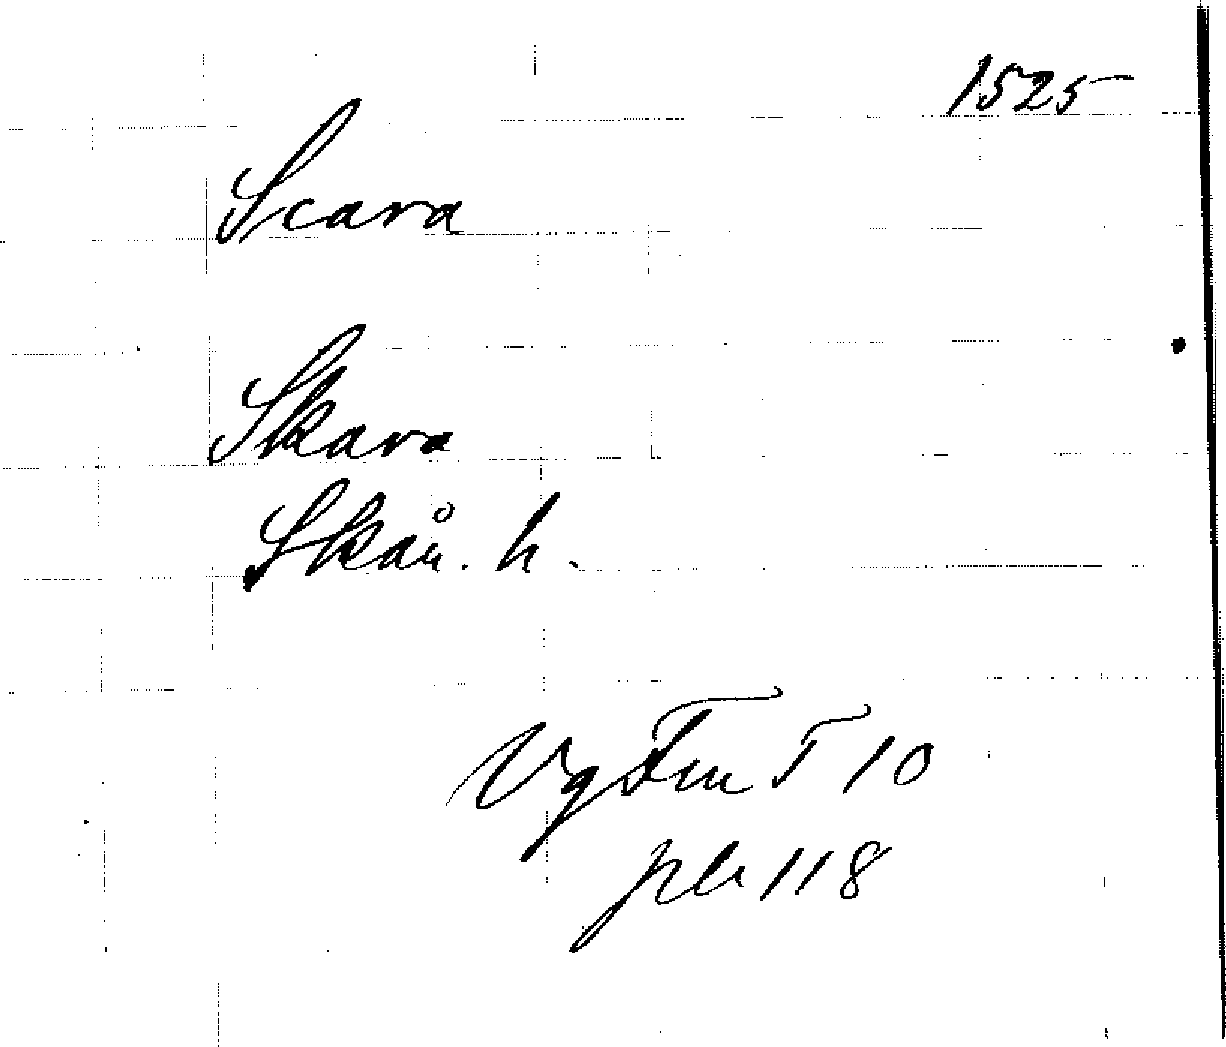 1525
Scara
Skara
Skån. h.
Vg Fm T 10
plr 118